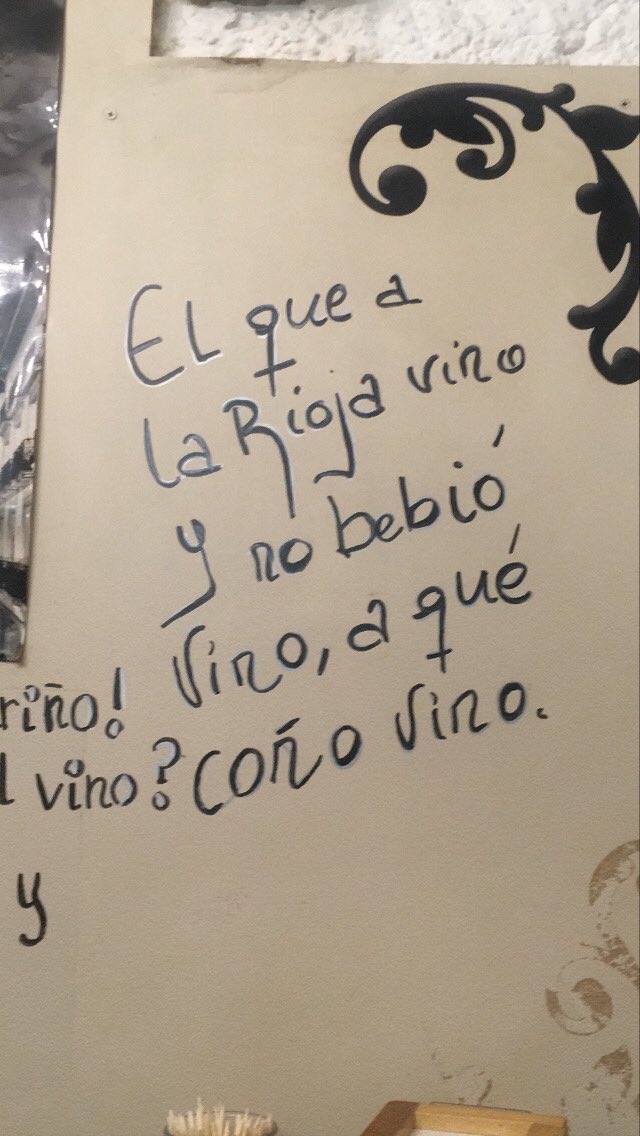 El que a
la Rioja vino
y no bebió
vino, a qué
coño vino.
riño!
l vino?
y